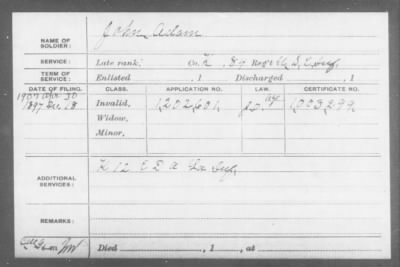 NAME OF SOLDIER: John Adam
SERVICE: Late rank, Co. K, 84 Reg't U.S.C. Inf.
TERM OF SERVICE: Enlisted , 1 Discharged , 1
DATE OF FILING. CLASS. APPLICATION NO. LAW. CERTIFICATE NO.
1907 Apr 30
1897 Dec. 18 Invalid, 1,202,601 1,003,299
Widow,
Minor,
ADDITIONAL SERVICES: K 12
REMARKS:
Died , 1 , at